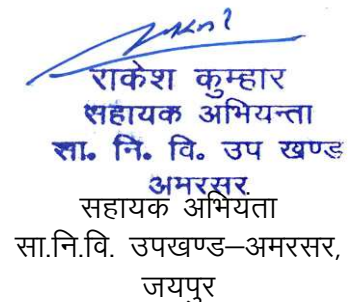 राकेश कुम्हार
सहायक अभियन्ता
सा. नि. वि. उप खण्ड
अमरसर
सहायक अभियंता
सा.नि.वि. उपखण्ड–अमरसर,
जयपुर